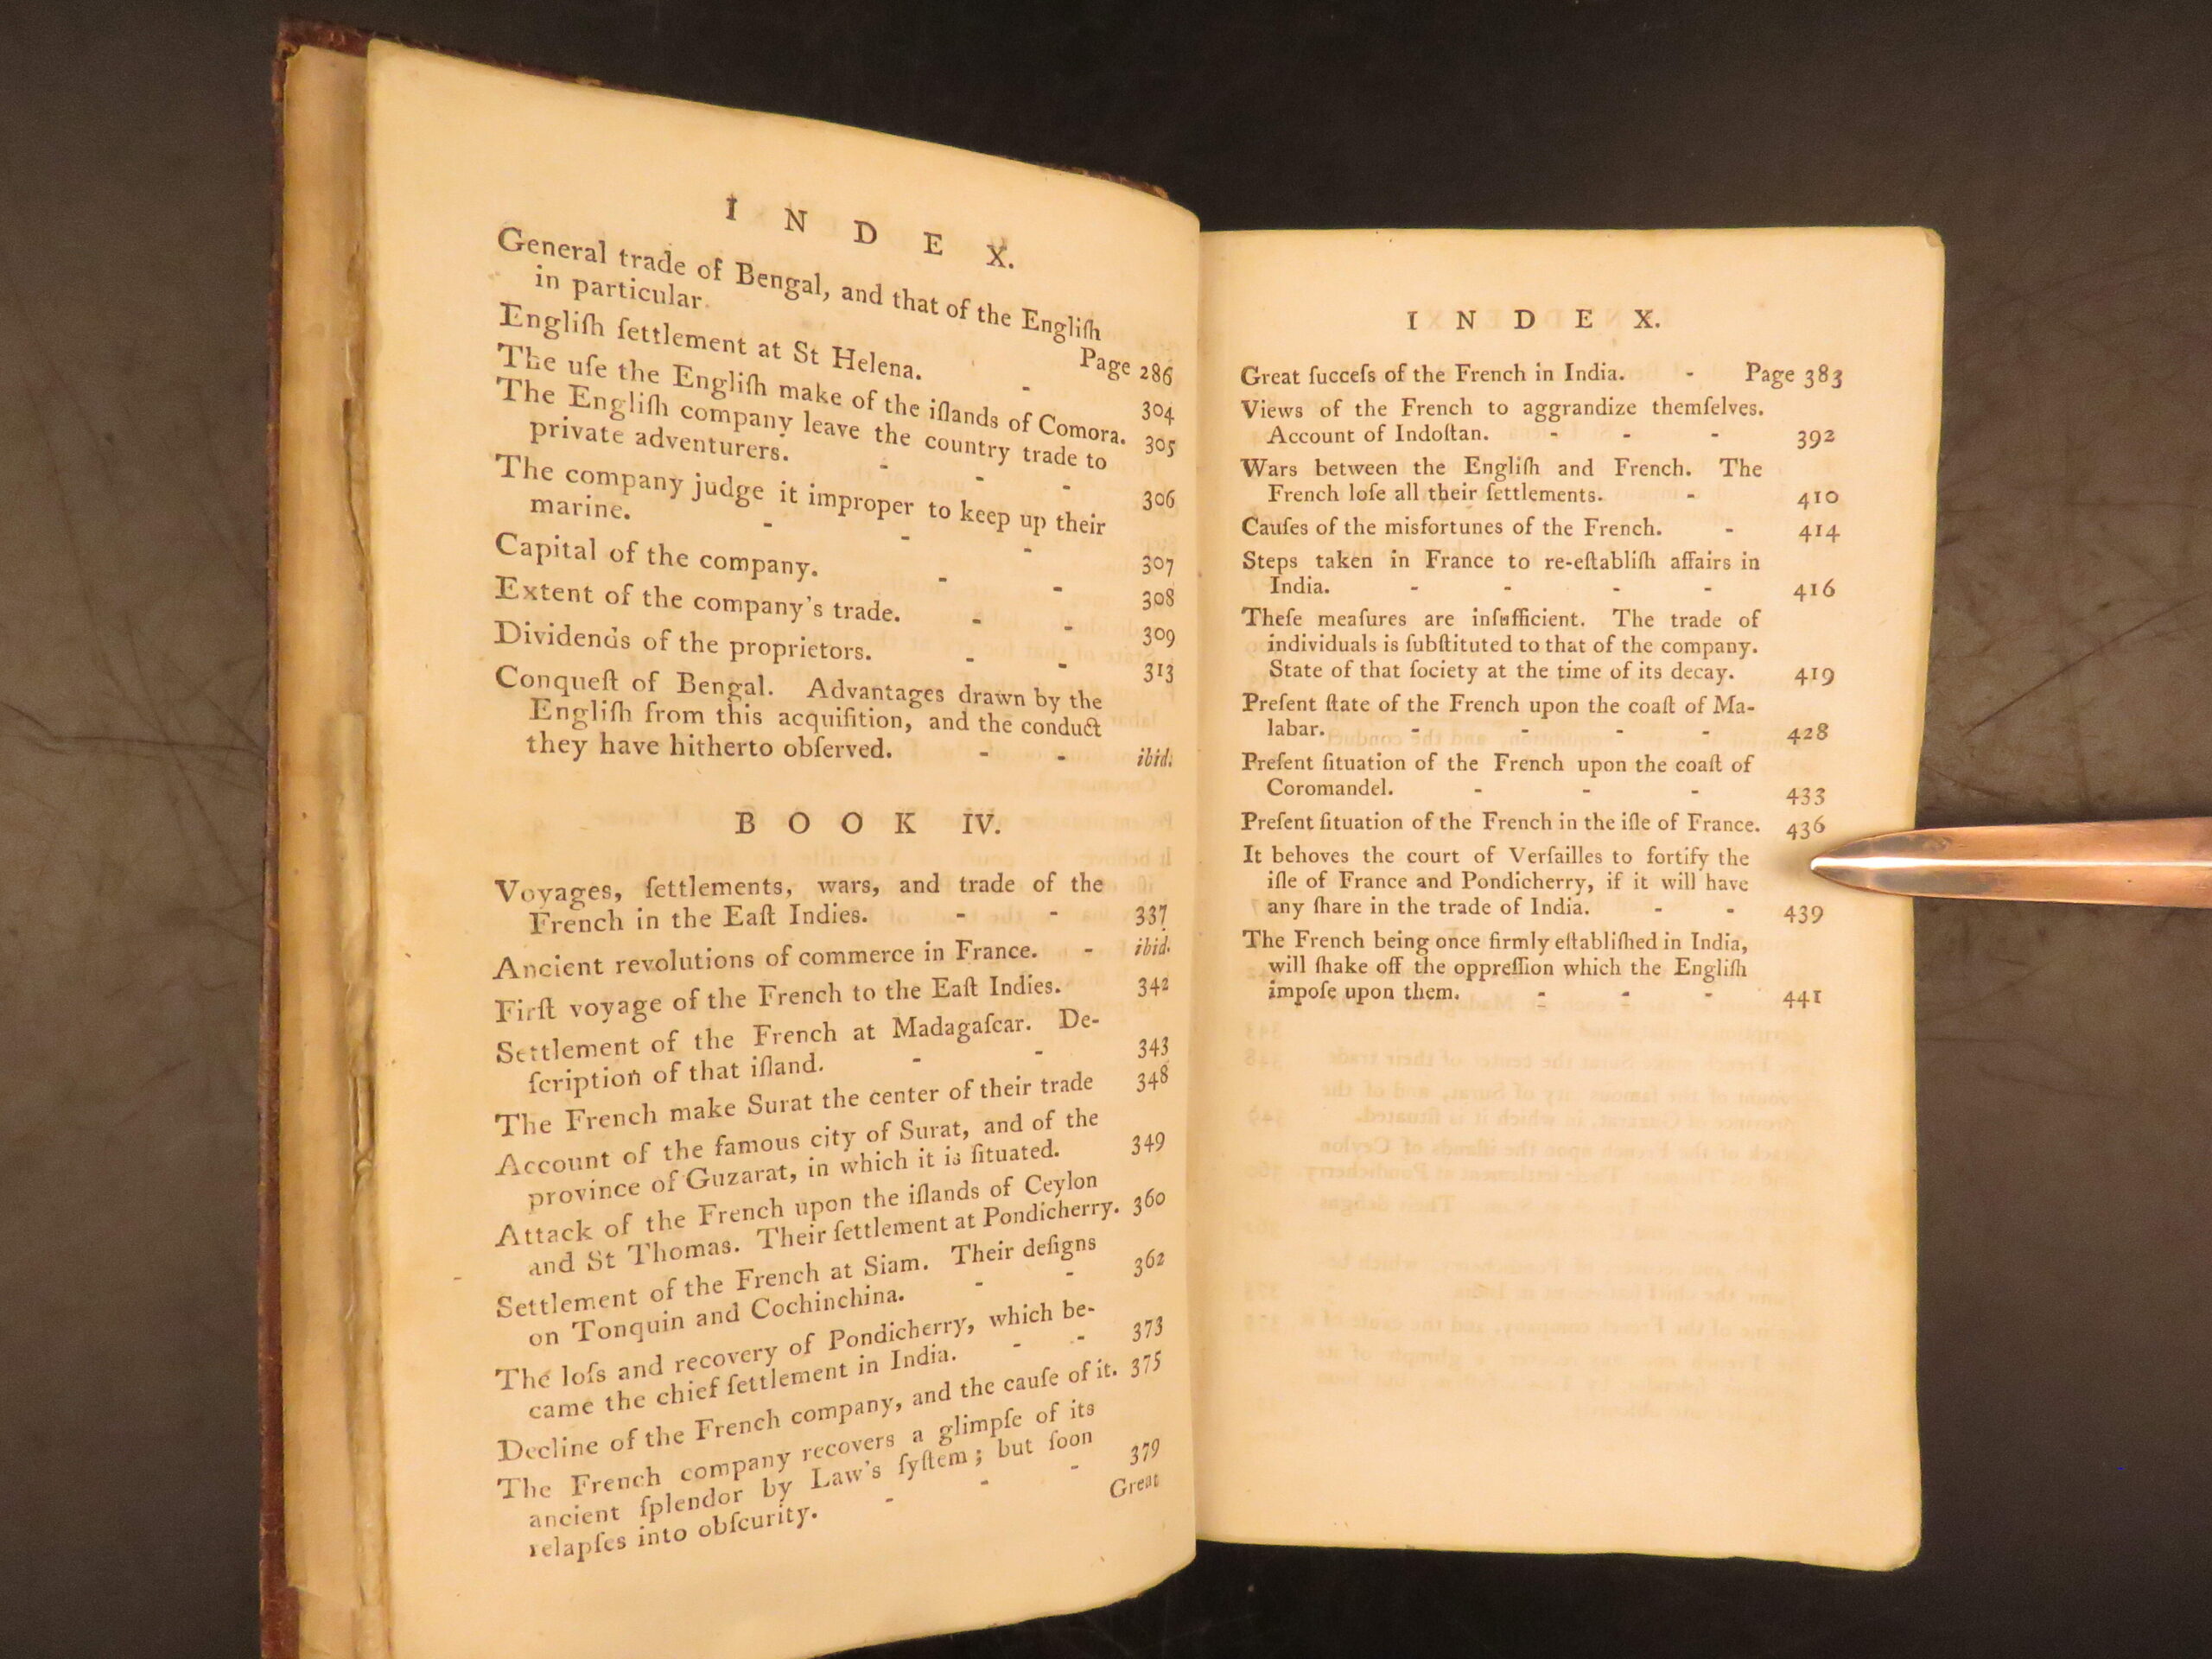 I N D E X.
General trade of Bengal, and that of the Engliſh
in particular. Page 286
Engliſh ſettlement at St Helena. - 304
The uſe the Engliſh make of the iſlands of Comora. 305
The Engliſh company leave the country trade to
private adventurers. - - - 306
The company judge it improper to keep up their
marine. - - - 307
Capital of the company. - - 308
Extent of the company's trade. - - 309
Dividends of the proprietors. - - 313
Conqueſt of Bengal. Advantages drawn by the
Engliſh from this acquiſition, and the conduct
they have hitherto obſerved. - - ibid.
B O O K IV.
Voyages, ſettlements, wars, and trade of the
French in the Eaſt Indies. - - 337
Ancient revolutions of commerce in France. - ibid.
Firſt voyage of the French to the Eaſt Indies. 342
Settlement of the French at Madagaſcar. De-
ſcription of that iſland. - - 343
The French make Surat the center of their trade 348
Account of the famous city of Surat, and of the
province of Guzarat, in which it is ſituated. 349
Attack of the French upon the iſlands of Ceylon
and St Thomas. Their ſettlement at Pondicherry. 360
Settlement of the French at Siam. Their deſigns
on Tonquin and Cochinchina. - - 362
The loſs and recovery of Pondicherry, which be-
came the chief ſettlement in India. - - 373
Decline of the French company, and the cauſe of it. 375
The French company recovers a glimpſe of its
ancient ſplendor by Law's ſyſtem; but ſoon
relapſes into obſcurity. - - - 379
Great
I N D E X.
Great ſucceſs of the French in India. - Page 383
Views of the French to aggrandize themſelves.
Account of Indoſtan. - - - 392
Wars between the Engliſh and French. The
French loſe all their ſettlements. - 410
Cauſes of the misfortunes of the French. - 414
Steps taken in France to re-eſtabliſh affairs in
India. - - - - 416
Theſe meaſures are inſufficient. The trade of
individuals is ſubſtituted to that of the company.
State of that ſociety at the time of its decay. 419
Preſent ſtate of the French upon the coaſt of Ma-
labar. - - - - 428
Preſent ſituation of the French upon the coaſt of
Coromandel. - - - 433
Preſent ſituation of the French in the iſle of France. 436
It behoves the court of Verſailles to fortify the
iſle of France and Pondicherry, if it will have
any ſhare in the trade of India. - - 439
The French being once firmly eſtabliſhed in India,
will ſhake off the oppreſſion which the Engliſh
impoſe upon them. - - - 441